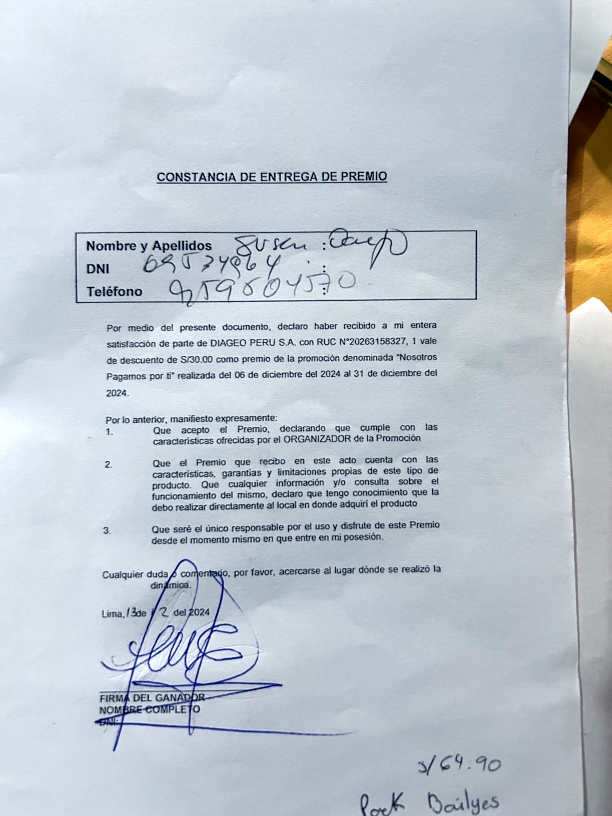 CONSTANCIA DE ENTREGA DE PREMIO
Nombre y Apellidos Susen :
DNI :
Teléfono : 959504570
Por medio del presente documento, declaro haber recibido a mi entera
satisfacción de parte de DIAGEO PERU S.A. con RUC N°20263158327, 1 vale
de descuento de S/30.00 como premio de la promoción denominada "Nosotros
Pagamos por ti" realizada del 06 de diciembre del 2024 al 31 de diciembre del
2024.
Por lo anterior, manifiesto expresamente:
1. Que acepto el Premio, declarando que cumple con las
características ofrecidas por el ORGANIZADOR de la Promoción
2. Que el Premio que recibo en este acto cuenta con las
características, garantías y limitaciones propias de este tipo de
producto. Que cualquier información y/o consulta sobre el
funcionamiento del mismo, declaro que tengo conocimiento que la
debo realizar directamente al local en donde adquirí el producto
3. Que seré el único responsable por el uso y disfrute de este Premio
desde el momento mismo en que entre en mi posesión.
Cualquier duda o comentario, por favor, acercarse al lugar dónde se realizó la
dinámica.
Lima, 13 de 12 del 2024
FIRMA DEL GANADOR
NOMBRE COMPLETO
DNI:
S/64.90
Pack Bailyes